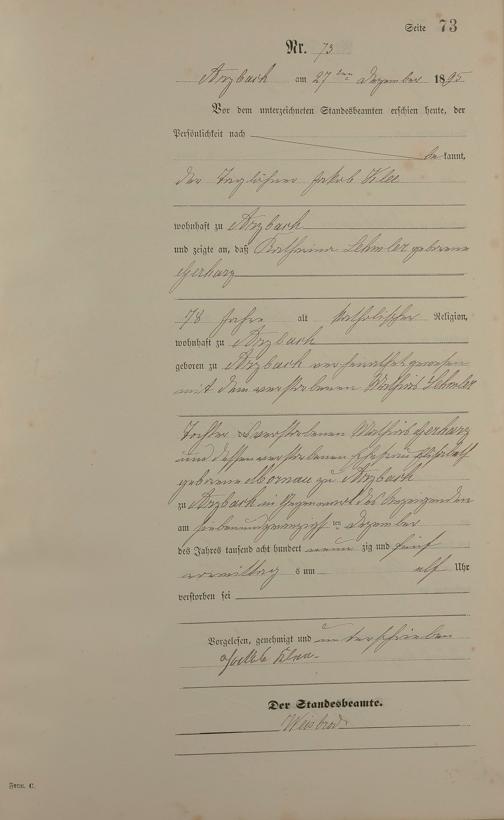 Seite 73
Nr. 73
Arzbach am 27ten Dezember 1895
Vor dem unterzeichneten Standesbeamten erschien heute, der
Persönlichkeit nach
bekannt,
der Taglöhner Jakob Klee
wohnhaft zu Arzbach
und zeigte an, daß Katharina Lehmler geborene
Gerharz
78 Jahre alt katholischer Religion,
wohnhaft zu Arzbach
geboren zu Arzbach verheirathet gewesen
mit dem verstorbenen Mathias Lehmler
Tochter des verstorbenen Mathias Gerharz
und dessen verstorbenen Ehefrau Elisabeth
geborene zu Arzbach
zu Arzbach in Gegenwart des Anzeigenden
am siebenundzwanzigsten Dezember
des Jahres tausend acht hundert neunzig und fünf
vormittags um elf Uhr
verstorben sei
Vorgelesen, genehmigt und unterschrieben
Jakob Klee
Der Standesbeamte.
Weisbrod
Form. C.